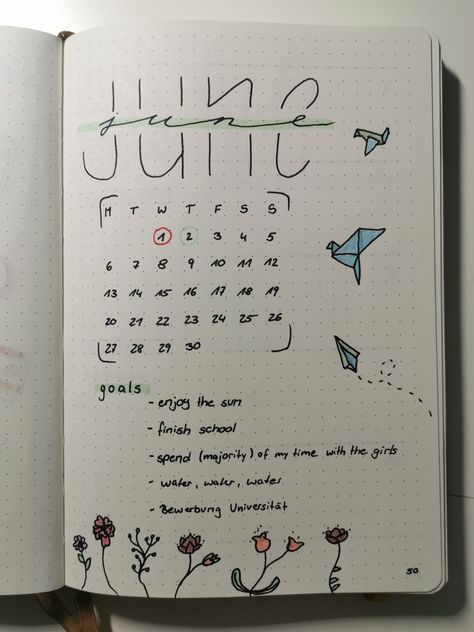 JUNE
june
M T W T F S S
1 2 3 4 5
6 7 8 9 10 11 12
13 14 15 16 17 18 19
20 21 22 23 24 25 26
27 28 29 30
goals
- enjoy the sun
- finish school
- spend (majority) of my time with the girls
- water, water, water
- Bewerbung Universität
50